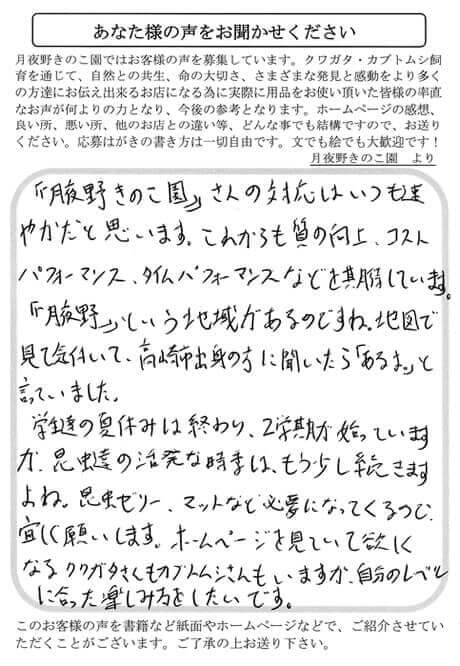 あなた様の声をお聞かせください
月夜野きのこ園ではお客様の声を募集しています。クワガタ・カブトムシ飼
育を通じて、自然との共生、命の大切さ、さまざまな発見と感動をより多く
の方達にお伝え出来るお店になる為に実際に用品をお使い頂いた皆様の率直
なお声が何よりの力となり、今後の参考となります。ホームページの感想、
良い所、悪い所、他のお店との違い等、どんな事でも結構ですので、お送り
ください。応募はがきの書き方は一切自由です。文でも絵でも大歓迎です！
月夜野きのこ園 より
『月夜野きのこ園』さんの対応はいつも速
やかだと思います。これからも質の向上、コスト
パフォーマンス、タイムパフォーマンスなどを期待しています。
『月夜野』という地域があるのですね。地図で
見て気付いて、高崎市出身の方に聞いたら「あるよ。」と
言っていました。
学生達の夏休みは終わり、2学期が始っています
が、昆虫達の活発な時季は、もう少し続きます
よね。昆虫ゼリー、マットなど必要になってくるので、
宜しく願いします。ホームページを見ていて欲しく
なるクワガタさんもカブトムシさんもいますが、自分のレベル
に合った楽しみ方をしたいです。
このお客様の声を書籍など紙面やホームページなどで、ご紹介させてい
ただくことがございます。ご了承の上お送り下さい。